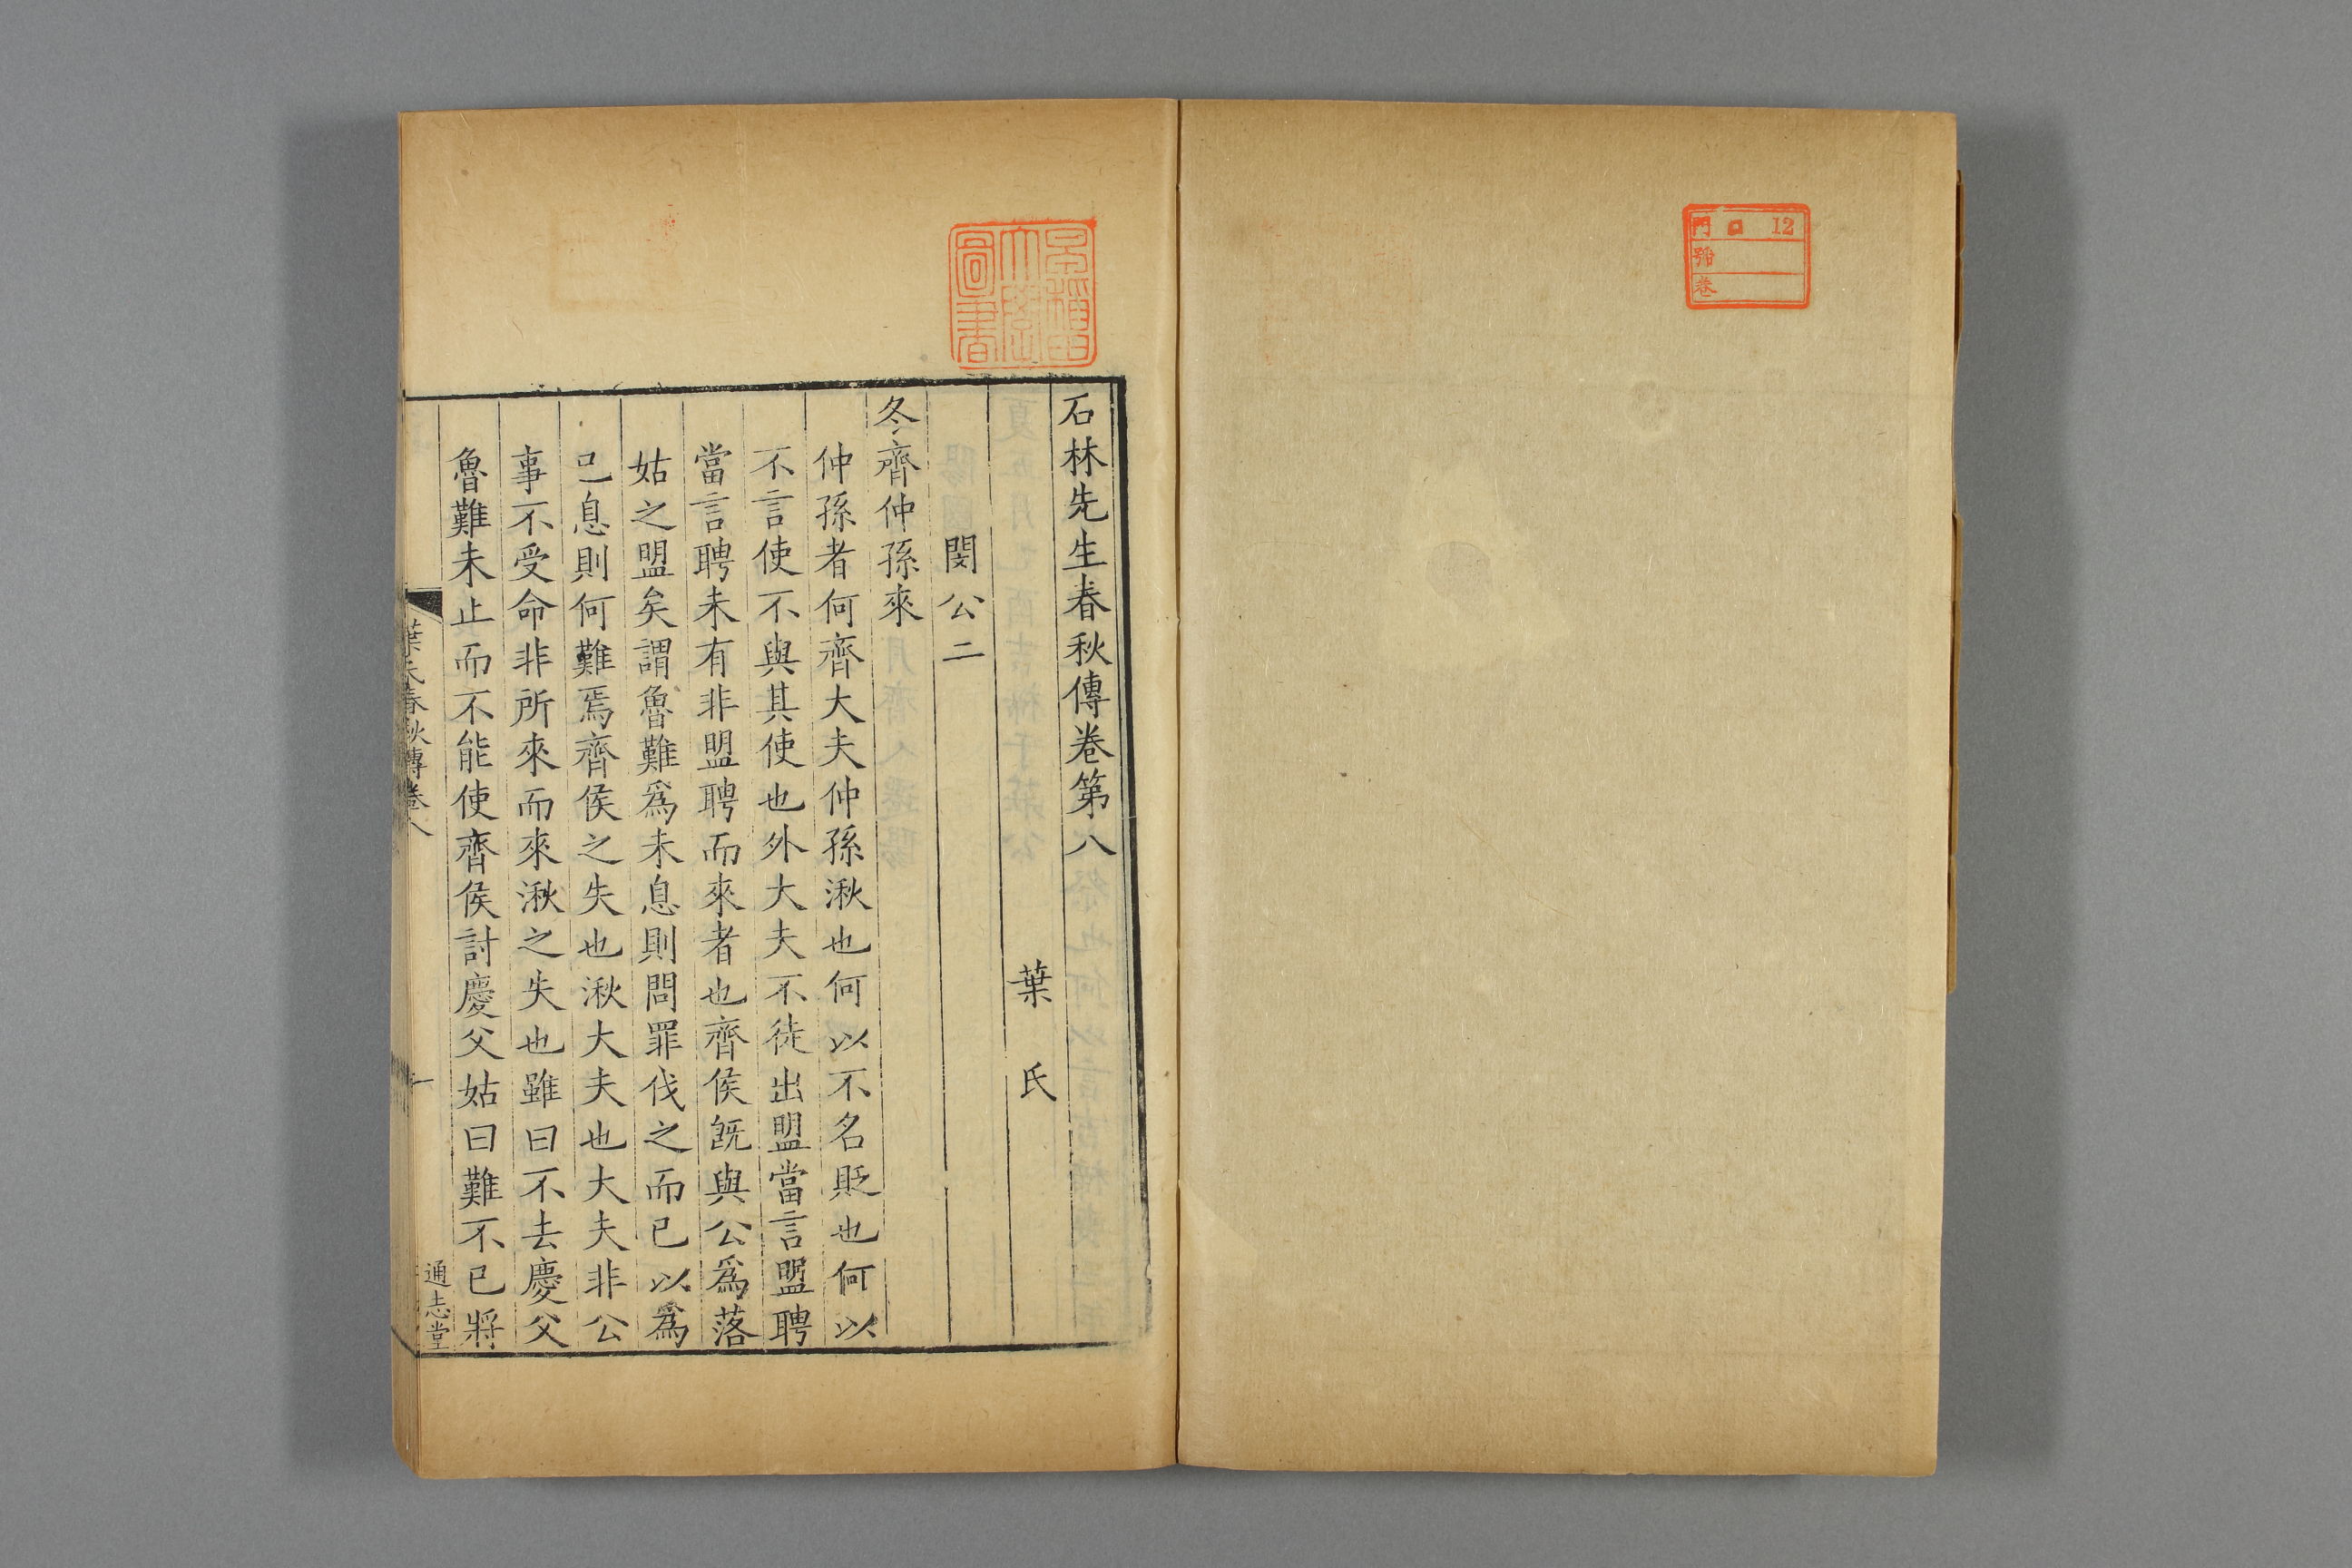 門 口 12
號
卷
早稲田
大學
圖書
石林先生春秋傳卷第八
葉氏
閔公二
冬齊仲孫來
仲孫者何齊大夫仲孫湫也何以不名貶也何以
不言使不與其使也外大夫不徒出盟當言盟聘
當言聘未有非盟聘而來者也齊侯旣與公爲落
姑之盟矣謂魯難爲未息則問罪伐之而已以爲
已息則何難焉齊侯之失也湫大夫也大夫非公
事不受命非所來而來湫之失也雖曰不去慶父
魯難未止而不能使齊侯討慶父姑曰難不已將
葉氏春秋傳卷八
一
通志堂